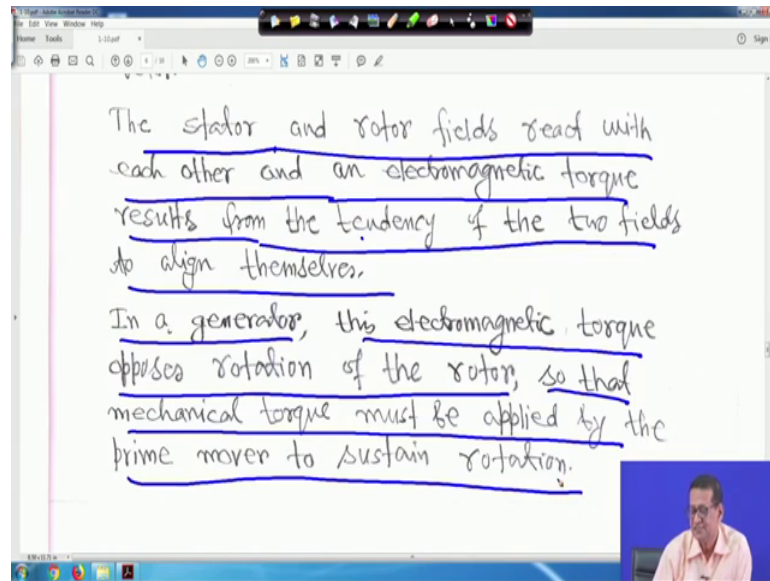 1-10.pdf - Adobe Acrobat Reader DC
File Edit View Window Help
Home Tools 1-10.pdf × Sign
The stator and rotor fields react with
each other and an electromagnetic torque
results from the tendency of the two fields
to align themselves.
In a generator, this electromagnetic torque
opposes rotation of the rotor, so that
mechanical torque must be applied by the
prime mover to sustain rotation.